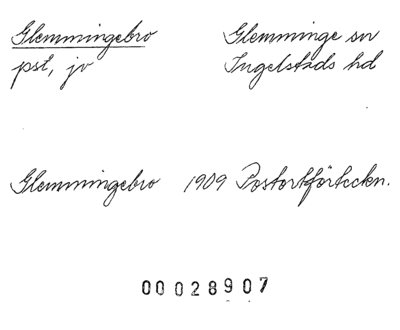 Glemmingebro
pst, jv
Glemminge sn
Ingelstads hd
Glemmingebro 1909 Postortförteckn.
00028907